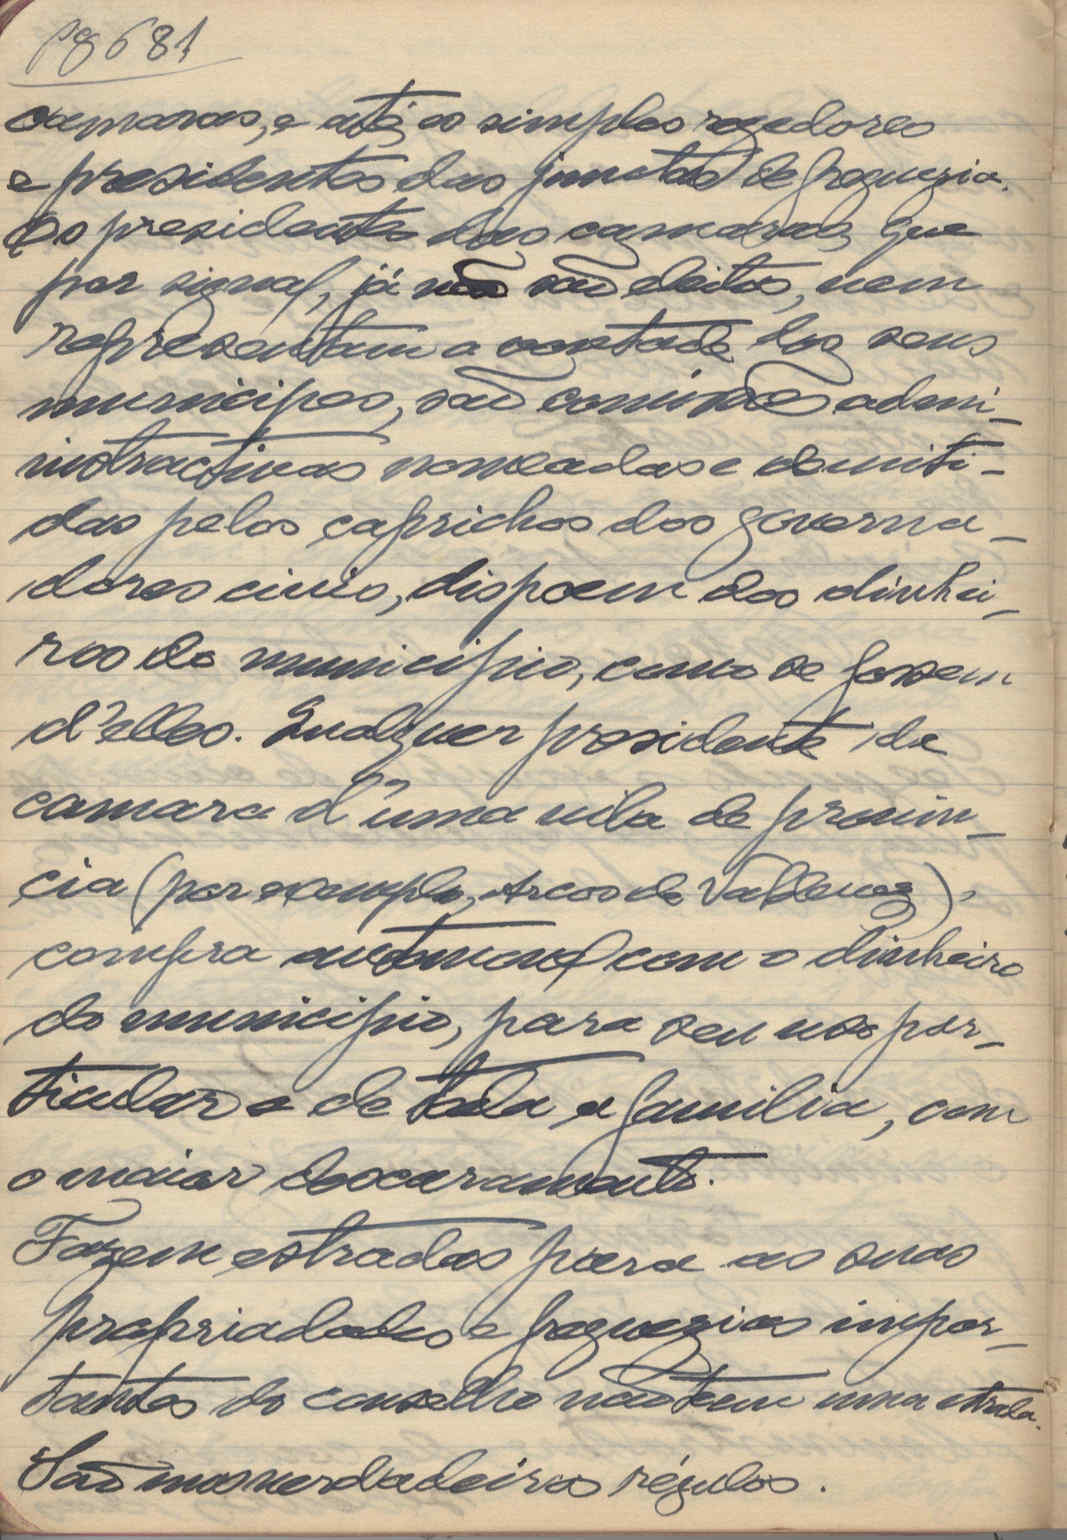 pg 681
camaras, e até os simples regedores
e presidentes das juntas de freguezia.
Os presidentes das camaras que
por signal, já não são eleitos, nem
representam a vontade dos seus
municipes, são comissões admi-
nistractivas nomeadas e demiti-
das pelos caprichos dos governa-
dores civis, dispoem dos dinhei-
ros do municipio, como se fossem
d'elles. Qualquer presidente da
camara d'uma vila de provin-
cia (por exemplo, Arcos de Valdevez),
compra automovel com o dinheiro
do municipio, para seu uso par-
ticular e de toda a familia, com
o maior descaramento.
Fazem estradas para as suas
propriedades e freguezias impor-
tantes do conselho não tem uma estrada.
São uns verdadeiros régulos.